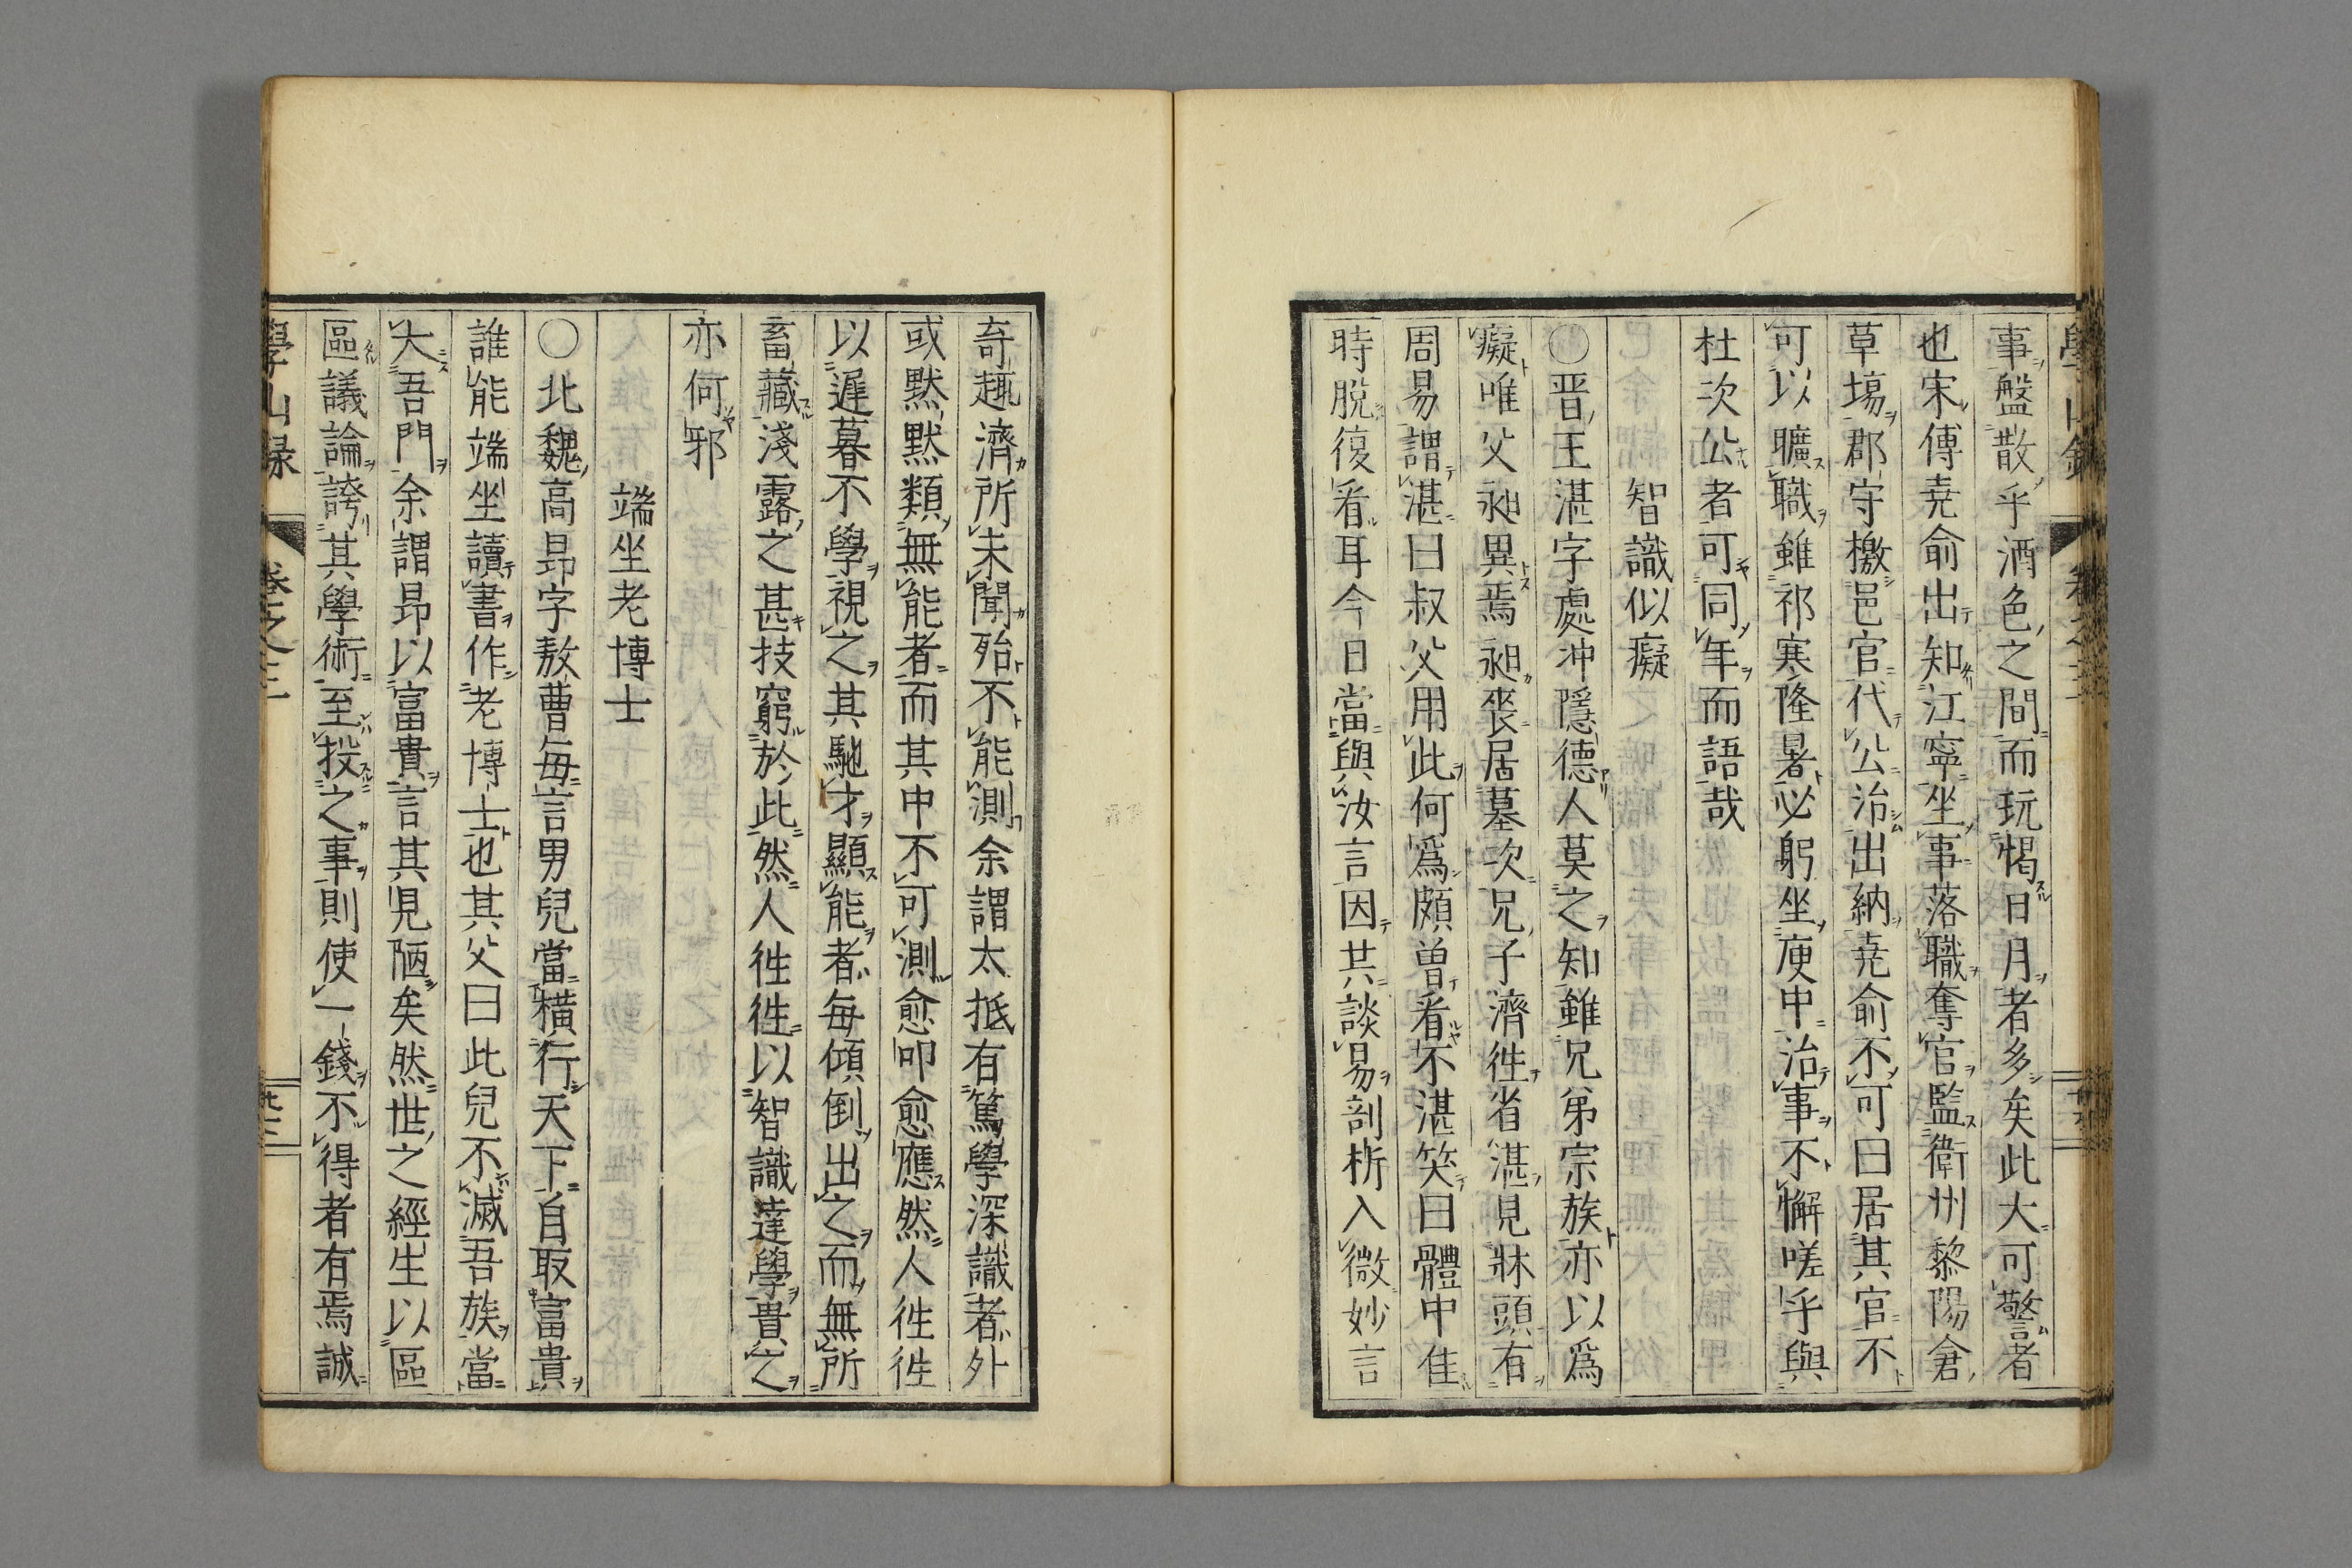 事盤散乎酒色之間而玩愒日月者多矣此大可警者
也宋傅堯俞出知江寧坐事落職奪官監衛州黎陽倉
草塲郡守檄邑官代公治出納堯俞不可曰居其官不
可以曠職雖祁寒隆暑必躬坐庾中治事不懈嗟乎與
杜次公者可同年而語哉
智識似癡
〇晋王湛字處沖隱德人莫之知雖兄弟宗族亦以爲
癡唯父昶異焉昶喪居墓次兄子濟徃省湛見牀頭有
周易謂湛曰叔父用此何爲頗曾看不湛笑曰體中佳
時脫復看耳今日當與汝言因共談易剖析入微妙言
奇趣濟所未聞殆不能測余謂太抵有篤學深識者外
或黙黙類無能者而其中不可測愈叩愈應然人徃徃
以遲暮不學視之其馳才顯能者每傾倒出之而無所
畜藏淺露之甚技窮於此然人徃徃以智識達學貴之
亦何邪
端坐老博士
〇北魏高昂字敖曹每言男兒當橫行天下自取富貴
誰能端坐讀書作老博士也其父曰此兒不滅吾族當
大吾門余謂昂以富貴言其見陋矣然世之經生以區
區議論誇其學術至投之事則使一錢不得者有焉誠
學山録
卷之三